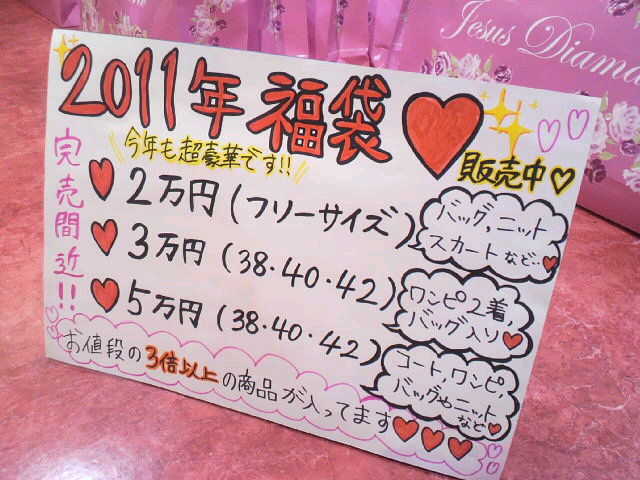 Jesus Diamo
2011年 福袋
今年も超豪華です!!
販売中
完売間近!!
2万円(フリーサイズ)
バッグ,ニット
スカートなど…
3万円(38・40・42)
ワンピ2着,
バッグ入り
5万円(38・40・42)
コート,ワンピ,
バッグやニット
など
お値段の3倍以上の商品が入ってます